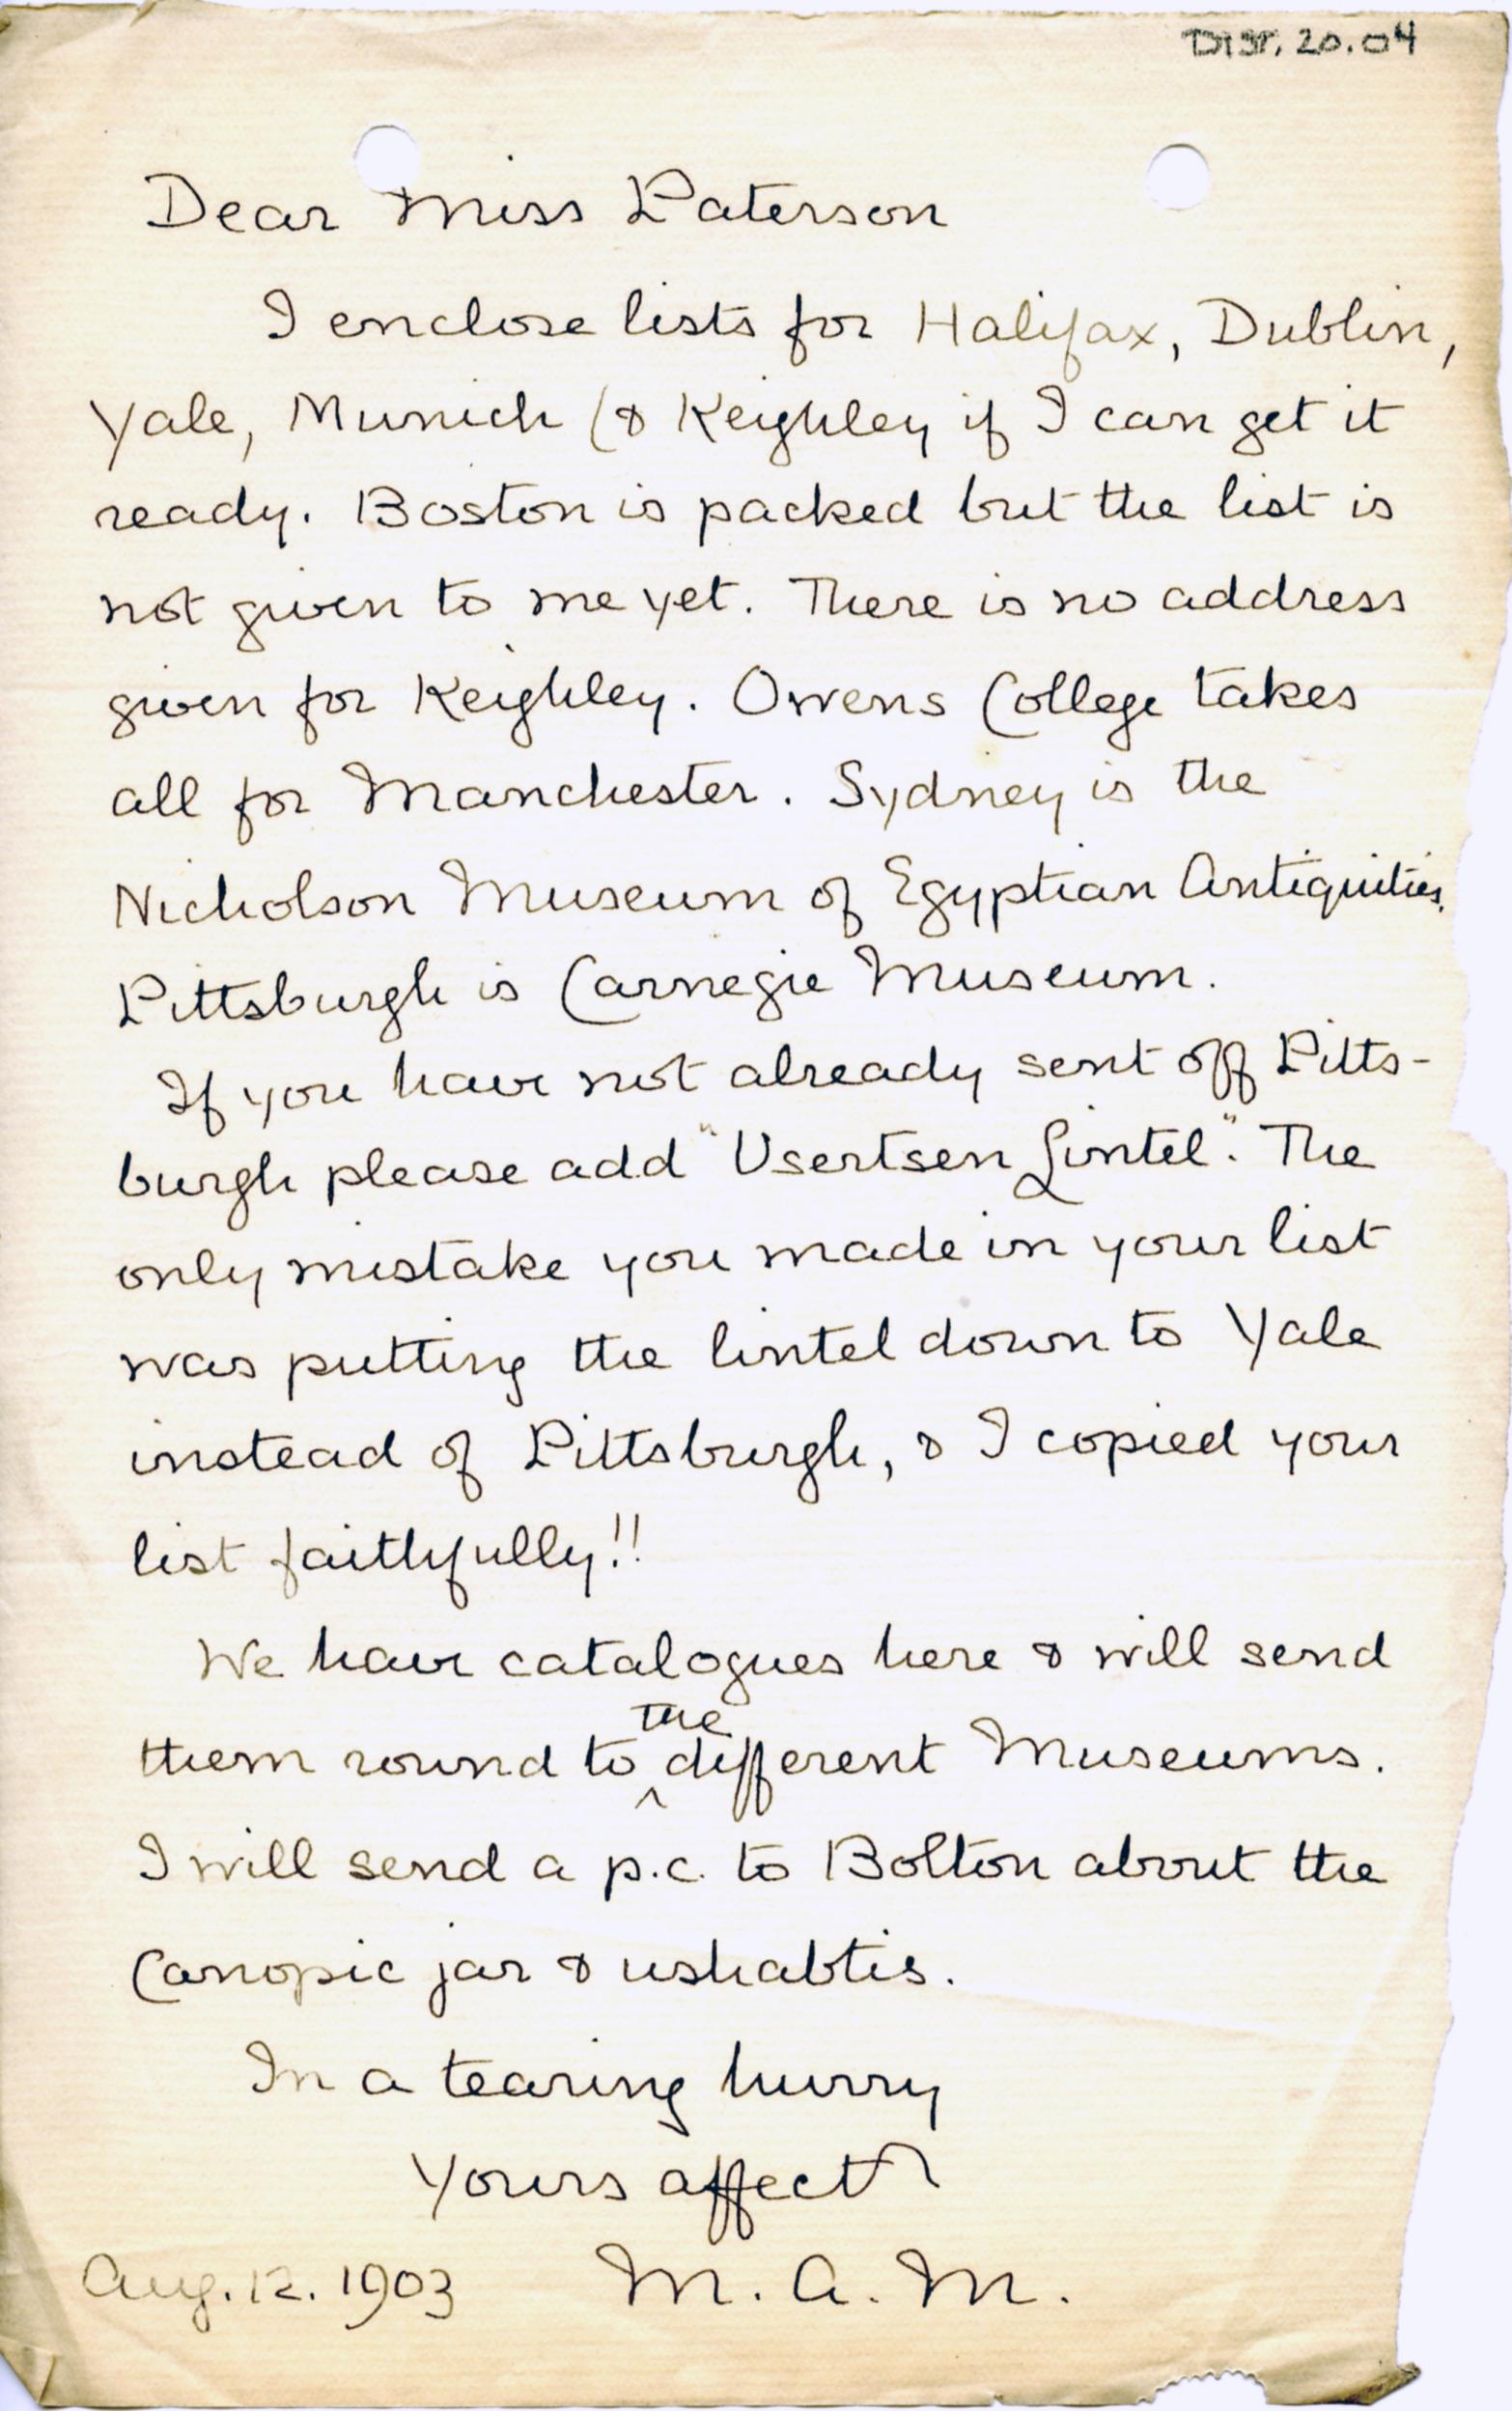 DIST. 20.04
Dear Miss Paterson
I enclose lists for Halifax, Dublin,
Yale, Munich (& Keighley if I can get it
ready. Boston is packed but the list is
not given to me yet. There is no address
given for Keighley. Owens College takes
all for Manchester. Sydney is the
Nicholson Museum of Egyptian Antiquities.
Pittsburgh is Carnegie Museum.
If you have not already sent off Pitts-
burgh please add "Usertsen Lintel". The
only mistake you made in your list
was putting the lintel down to Yale
instead of Pittsburgh, & I copied your
list faithfully!!
We have catalogues here & will send
them round to the different Museums.
I will send a p.c. to Bolton about the
Canopic jar & ushabtis.
In a tearing hurry
Yours affect
M. A. M.
Aug. 12. 1903